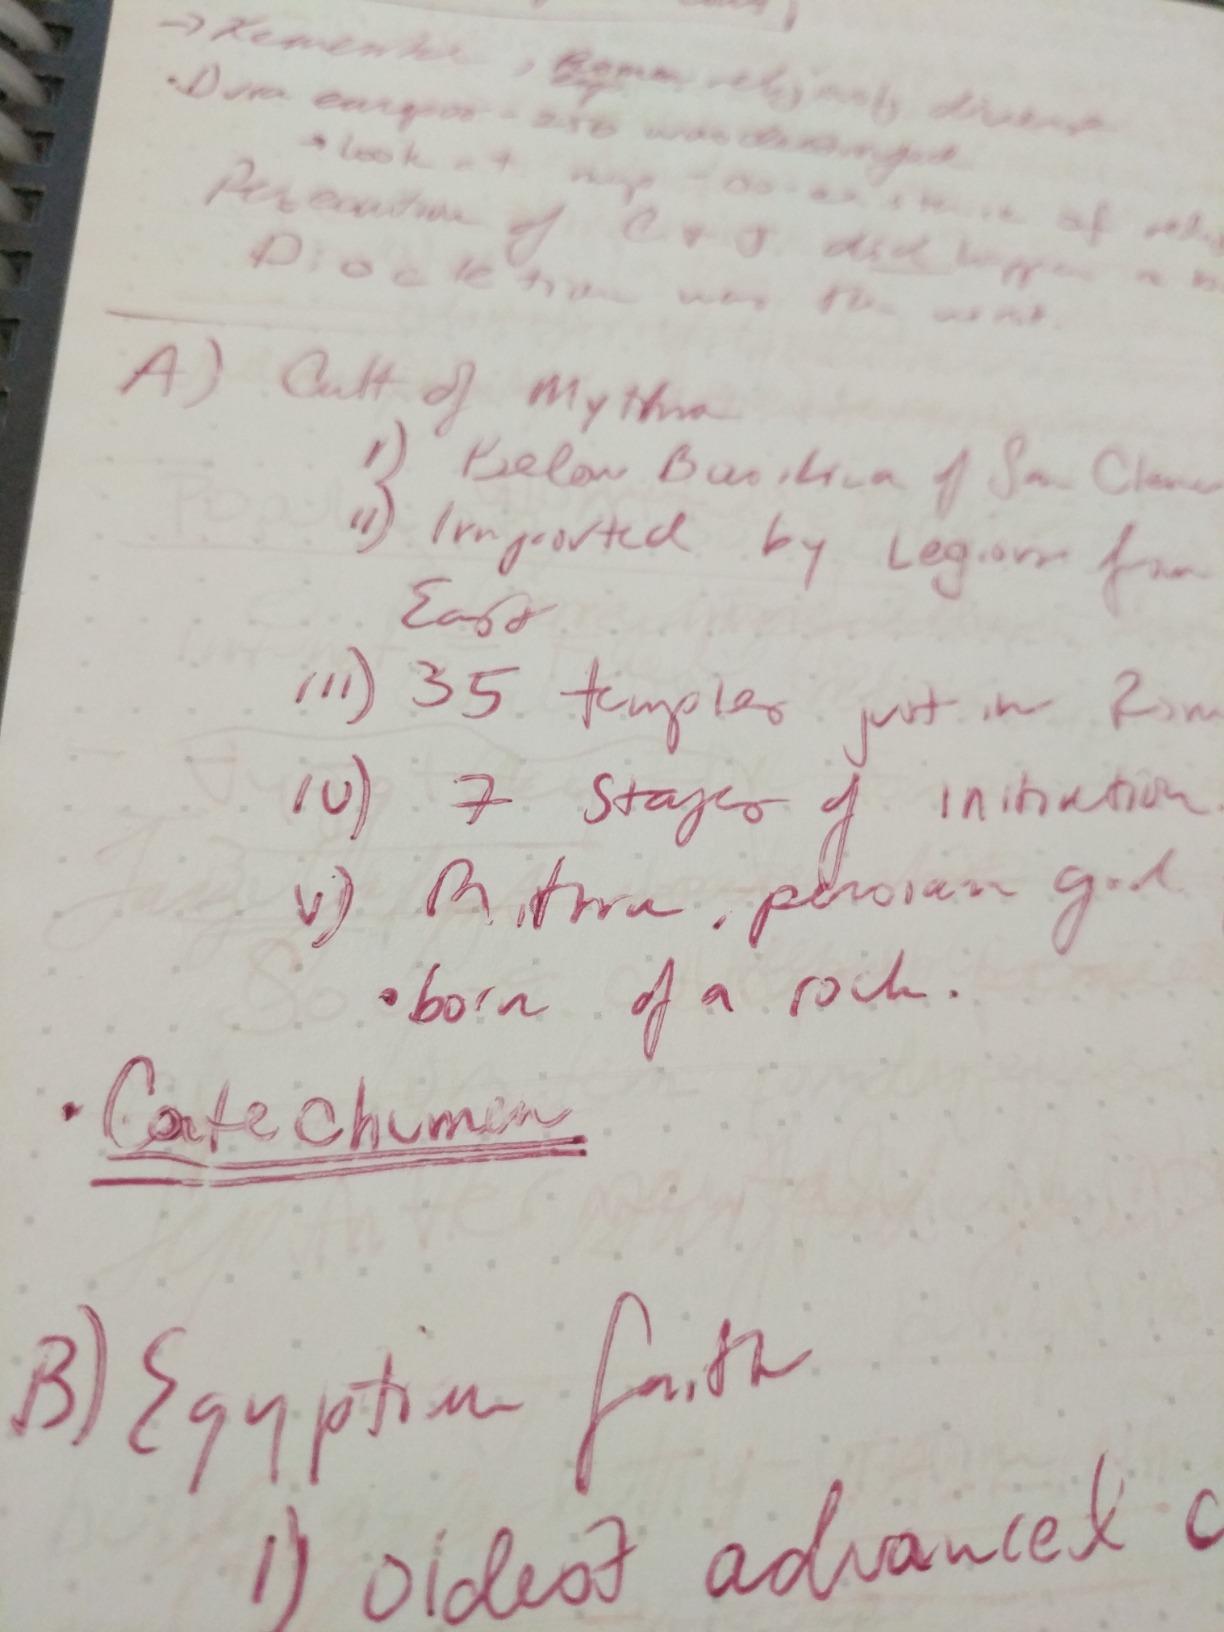 → Remember, Roman religiously diverse
• Dura europos - 256 was destroyed
• Look at map - Co-existence of
Persecution of C + J did happen
Diocletian was the worst.
A) Cult of Mythra
i) Below Basilica of San
ii) Imported by Legions from
East
iii) 35 temples just in
iv) 7 stages of initiation.
v) Mithra, persian god
• born of a rock.
• Catechumen
B) Egyptian faith
i) oldest advanced